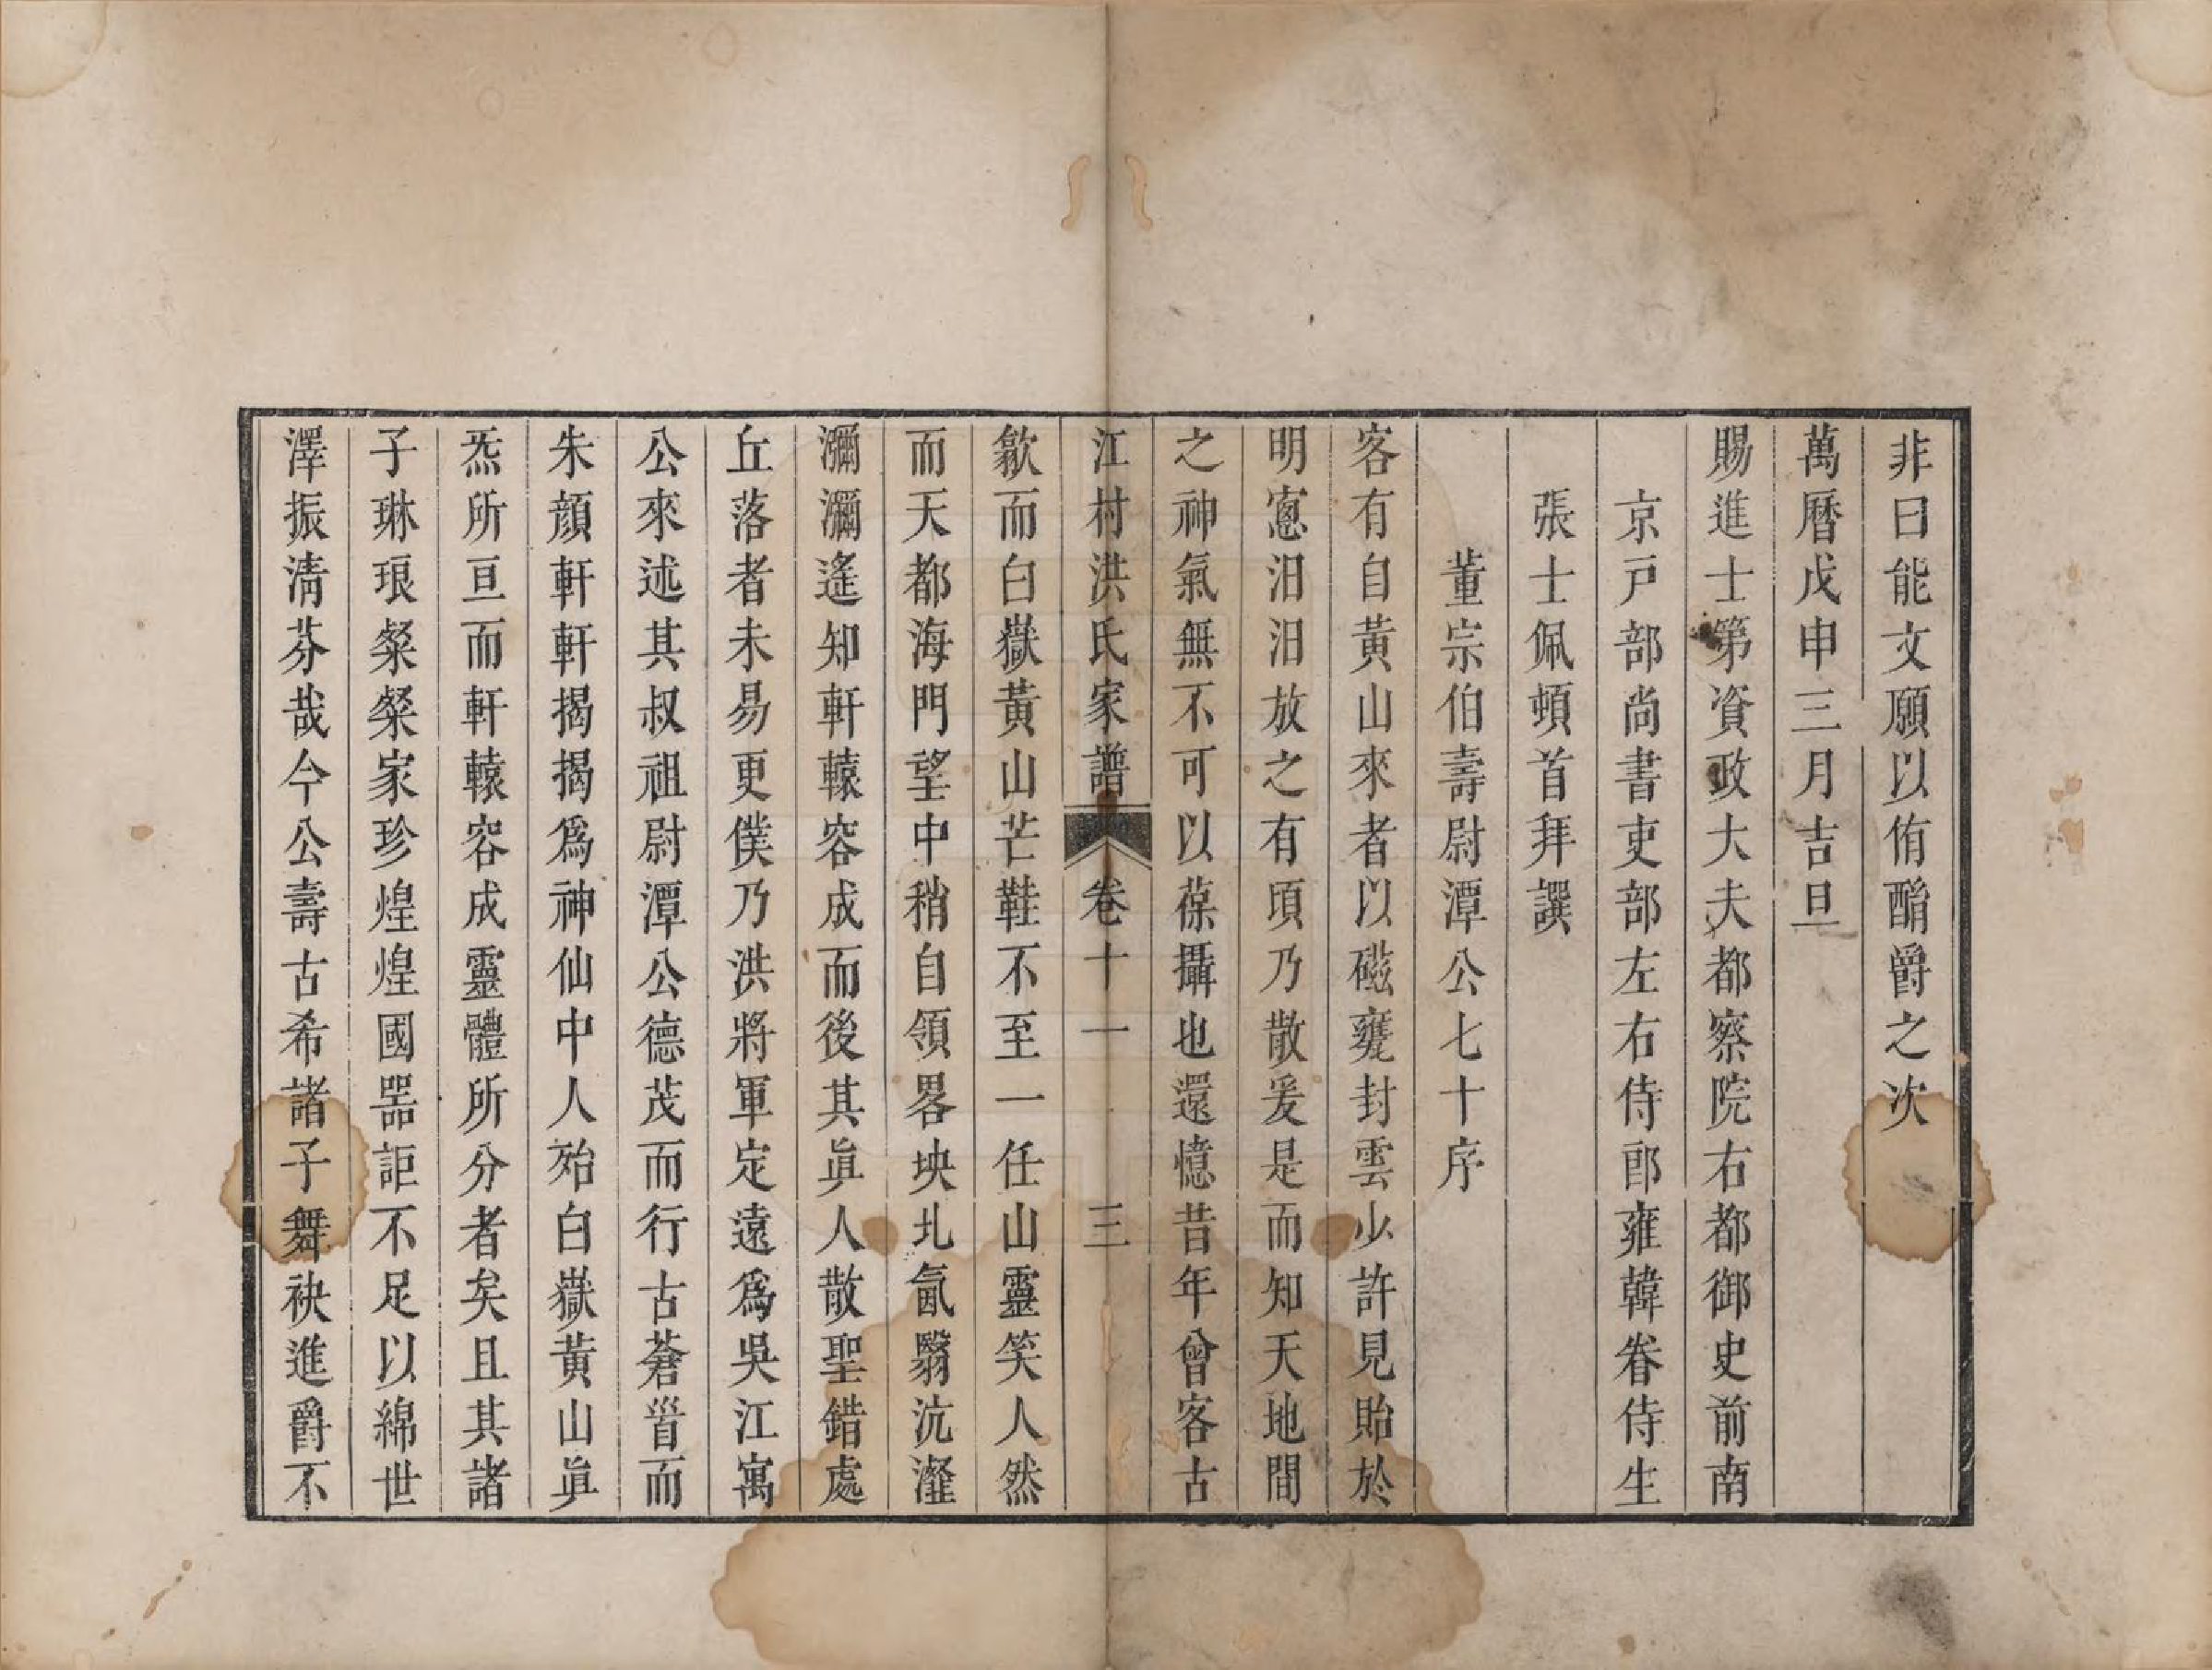 非曰能文願以侑酳爵之次
萬曆戊申三月吉旦
賜進士第資政大夫都察院右都御史前南
京戸部尚書吏部左右侍郎雍韓眷侍生
張士佩頓首拜譔
董宗伯壽尉潭公七十序
客有自黃山來者以磁甕封雲少許見貽於
明窻汨汨放之有頃乃散爰是而知天地間
之神氣無不可以葆攝也還憶昔年曾客古
江村洪氏家譜 卷十一 三
歙而白嶽黃山芒鞋不至一任山靈笑人然
而天都海門望中稍自領畧坱圠氤翳沆瀣
瀰瀰遙知軒轅容成而後其眞人散聖錯處
丘落者未易更僕乃洪將軍定遠爲吳江寓
公來述其叔祖尉潭公德茂而行古蒼眥而
朱顏軒軒揭揭爲神仙中人殆白嶽黃山眞
炁所亘而軒轅容成靈體所分者矣且其諸
子琳琅粲粲家珍煌煌國噐詎不足以綿世
澤振淸芬哉今公壽古希諸子舞袂進爵不